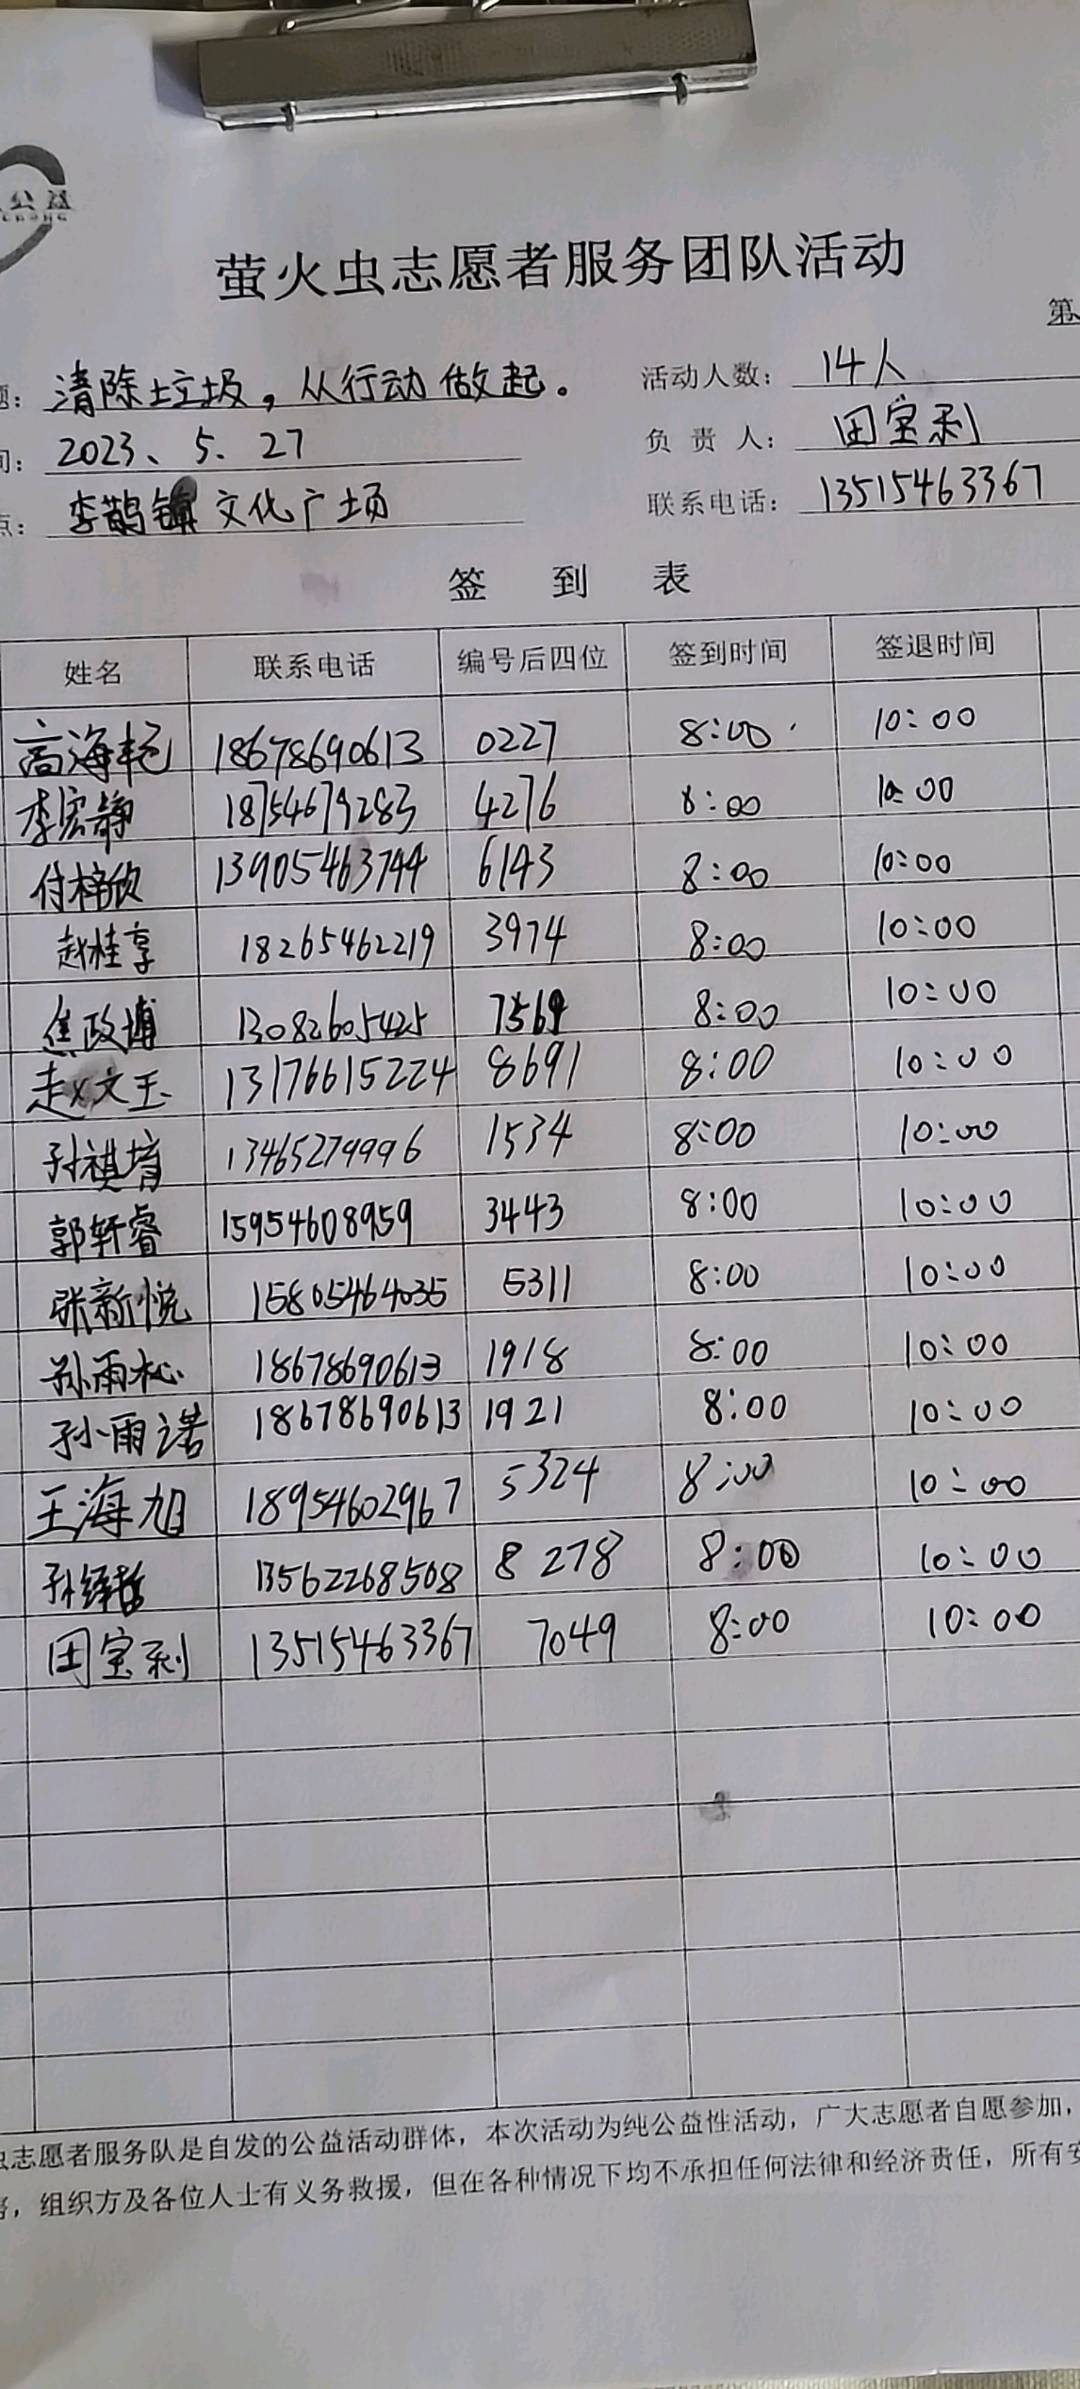 公益
萤火虫志愿者服务团队活动
第
题: 清除垃圾，从行动做起。 活动人数: 14人
间: 2023、5、27 负责人: 田宝利
点: 李鹊镇文化广场 联系电话: 13515463367
签到表
姓名 联系电话 编号后四位 签到时间 签退时间
高海艳 18678690613 0227 8:00 10:00
李宏静 18754679283 4276 8:00 10:00
付梓欣 13905463744 6143 8:00 10:00
赵桂享 18265462219 3974 8:00 10:00
焦政博 13082605425 7569 8:00 10:00
赵文玉 13176615224 8691 8:00 10:00
孙祺堉 13465279996 1534 8:00 10:00
郭轩睿 15954608959 3443 8:00 10:00
张新悦 15805464035 5311 8:00 10:00
孙雨松 18678690613 1918 8:00 10:00
孙雨诺 18678690613 1921 8:00 10:00
王海旭 18954602967 5324 8:00 10:00
孙铎哲 13562268508 8278 8:00 10:00
田宝利 13515463367 7049 8:00 10:00
虫志愿者服务队是自发的公益活动群体，本次活动为纯公益性活动，广大志愿者自愿参加，
，组织方及各位人士有义务救援，但在各种情况下均不承担任何法律和经济责任，所有安